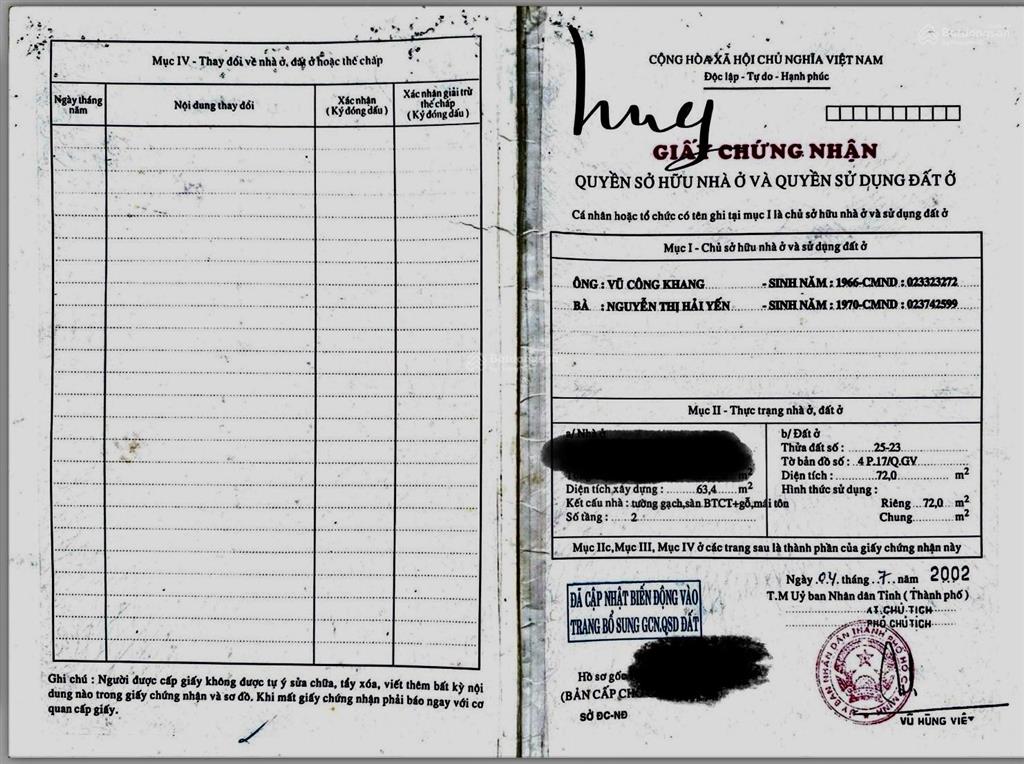 Mục IV - Thay đổi về nhà ở, đất ở hoặc thế chấp
Ngày tháng năm
Nội dung thay đổi
Xác nhận
(Ký đóng dấu)
Xác nhận giải trừ thế chấp
(Ký đóng dấu)
Ghi chú : Người được cấp giấy không được tự ý sửa chữa, tẩy xóa, viết thêm bất kỳ nội
dung nào trong giấy chứng nhận và sơ đồ. Khi mất giấy chứng nhận phải báo ngay với cơ
quan cấp giấy.
CỘNG HÒA XÃ HỘI CHỦ NGHĨA VIỆT NAM
Độc lập - Tự do - Hạnh phúc
GIẤY CHỨNG NHẬN
QUYỀN SỞ HỮU NHÀ Ở VÀ QUYỀN SỬ DỤNG ĐẤT Ở
Cá nhân hoặc tổ chức có tên ghi tại mục I là chủ sở hữu nhà ở và sử dụng đất ở
Mục I - Chủ sở hữu nhà ở và sử dụng đất ở
ÔNG : VŨ CÔNG KHANG - SINH NĂM : 1966-CMND : 023323272
BÀ : NGUYỄN THỊ HẢI YẾN - SINH NĂM : 1970-CMND : 023742599
Mục II - Thực trạng nhà ở, đất ở
a/ Nhà ở
Diện tích xây dựng : 63,4 m2
Kết cấu nhà : tường gạch,sàn BTCT+gỗ,mái tôn
Số tầng : 2
b/ Đất ở
Thửa đất số : 25-23
Tờ bản đồ số : 4 P.17/Q.GV
Diện tích : 72,0 m2
Hình thức sử dụng :
Riêng 72,0 m2
Chung m2
Mục IIc,Mục III, Mục IV ở các trang sau là thành phần của giấy chứng nhận này
Ngày 04 tháng 7 năm 2002
T.M Uỷ ban Nhân dân Tỉnh ( Thành phố )
KT.CHỦ TỊCH
PHÓ CHỦ TỊCH
ĐÃ CẬP NHẬT BIẾN ĐỘNG VÀO
TRANG BỔ SUNG GCN,QSD ĐẤT
Hồ sơ gốc
(BẢN CẤP CH
SỞ ĐC-NĐ
VŨ HÙNG VIỆT